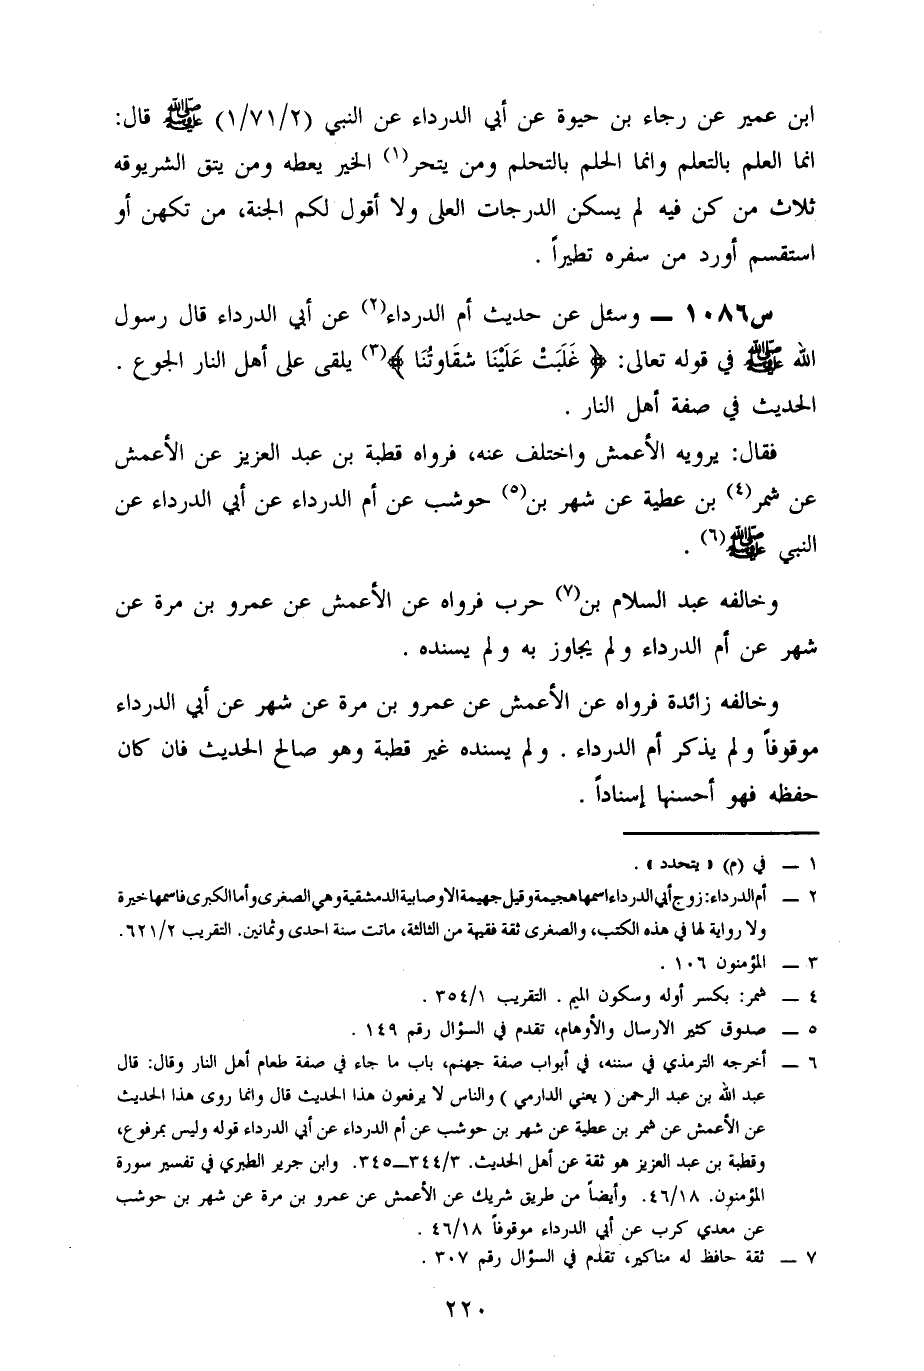 ابن عمير عن رجاء بن حيوة عن أبي الدرداء عن النبي (١/٧١/٢) ﷺ قال:
انما العلم بالتعلم وانما الحلم بالتحلم ومن يتحر(١) الخير يعطه ومن يتق الشريوقه
ثلاث من كن فيه لم يسكن الدرجات العلى ولا أقول لكم الجنة، من تكهن أو
استقسم أورد من سفره تطيراً .
س١٠٨٦ ــ وسئل عن حديث أم الدرداء(٢) عن أبي الدرداء قال رسول
الله ﷺ في قوله تعالى: ﴿ غَلَبَتْ عَلَيْنَا شقَاوتُنَا ﴾(٣) يلقى على أهل النار الجوع .
الحديث في صفة أهل النار .
فقال: يرويه الأعمش واختلف عنه، فرواه قطبة بن عبد العزيز عن الأعمش
عن شمر(٤) بن عطية عن شهر بن(٥) حوشب عن أم الدرداء عن أبي الدرداء عن
النبي ﷺ(٦) .
وخالفه عبد السلام بن(٧) حرب فرواه عن الأعمش عن عمرو بن مرة عن
شهر عن أم الدرداء ولم يجاوز به ولم يسنده .
وخالفه زائدة فرواه عن الأعمش عن عمرو بن مرة عن شهر عن أبي الدرداء
موقوفاً ولم يذكر أم الدرداء . ولم يسنده غير قطبة وهو صالح الحديث فان كان
حفظه فهو أحسنها إسناداً .
١ ــ في (م) « يتحدد » .
٢ ــ أم الدرداء: زوج أبي الدرداء اسمها هجيمة وقيل جهيمة الاوصابية الدمشقية وهي الصغرى وأما الكبرى فاسمها خيرة
ولا رواية لها في هذه الكتب، والصغرى ثقة فقيهة من الثالثة، ماتت سنة احدى وثمانين. التقريب ٦٢١/٢.
٣ ــ المؤمنون ١٠٦ .
٤ ــ شمر: بكسر أوله وسكون الميم . التقريب ٣٥٤/١ .
٥ ــ صدوق كثير الارسال والأوهام، تقدم في السؤال رقم ١٤٩ .
٦ ــ أخرجه الترمذي في سننه، في أبواب صفة جهنم، باب ما جاء في صفة طعام أهل النار وقال: قال
عبد الله بن عبد الرحمن ( يعني الدارمي ) والناس لا يرفعون هذا الحديث قال وانما روى هذا الحديث
عن الأعمش عن شمر بن عطية عن شهر بن حوشب عن أم الدرداء عن أبي الدرداء قوله وليس بمرفوع،
وقطبة بن عبد العزيز هو ثقة عن أهل الحديث. ٣٤٤/٣ــ٣٤٥. وابن جرير الطبري في تفسير سورة
المؤمنون. ٤٦/١٨. وأيضاً من طريق شريك عن الأعمش عن عمرو بن مرة عن شهر بن حوشب
عن معدي كرب عن أبي الدرداء موقوفاً ٤٦/١٨ .
٧ ــ ثقة حافظ له مناكير، تقدم في السؤال رقم ٣٠٧ .
٢٢٠